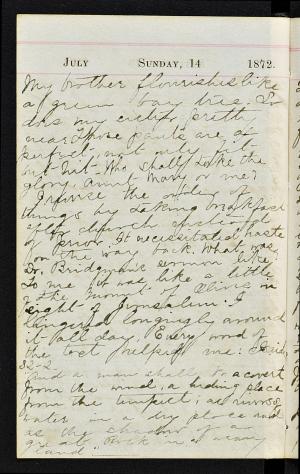 JULY SUNDAY, 14 1872.
My brother flourishes like
a green bay tree. So
does my sister pretty
near. Those pants are a
perfect, not only fit
but hit. Who shall take the
glory, Aunt Mary or me?
I reverse the order of
things by taking breakfast
after church instead
of prior. It necessitated haste
on the way back. What was
Dr. Bridgman's sermon like
To me it was like a little
the mount of Olives in
sight of Jerusalem. I
lingered longingly around
it all day. Every word of
the text helped me:
32-2.
And a man shall be a covert
from the wind, a hiding place
from the tempest; as rivers of
water in a dry place and
as the shadow of a
great rock in a weary
land.